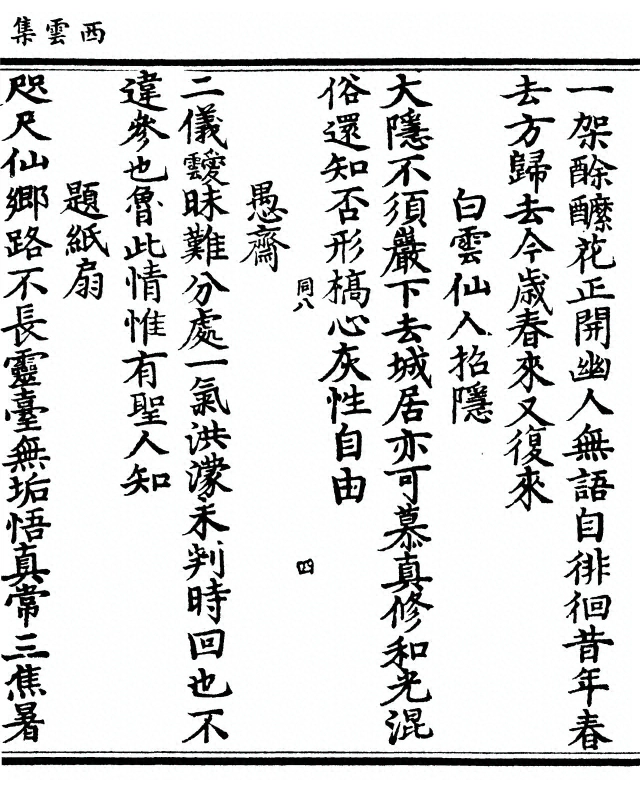 西雲集
一架酴醿花正開幽人無語自徘徊昔年春
去方歸去今歳春來又復來
白雲仙人招隱
大隱不須巖下去城居亦可慕真修和光混
俗還知否形槁心灰性自由
同八
四
愚齋
二儀靉昧難分處一氣洪濛未判時回也不
違參也魯此情惟有聖人知
題紙扇
咫尺仙鄉路不長靈臺無垢悟真常三焦暑